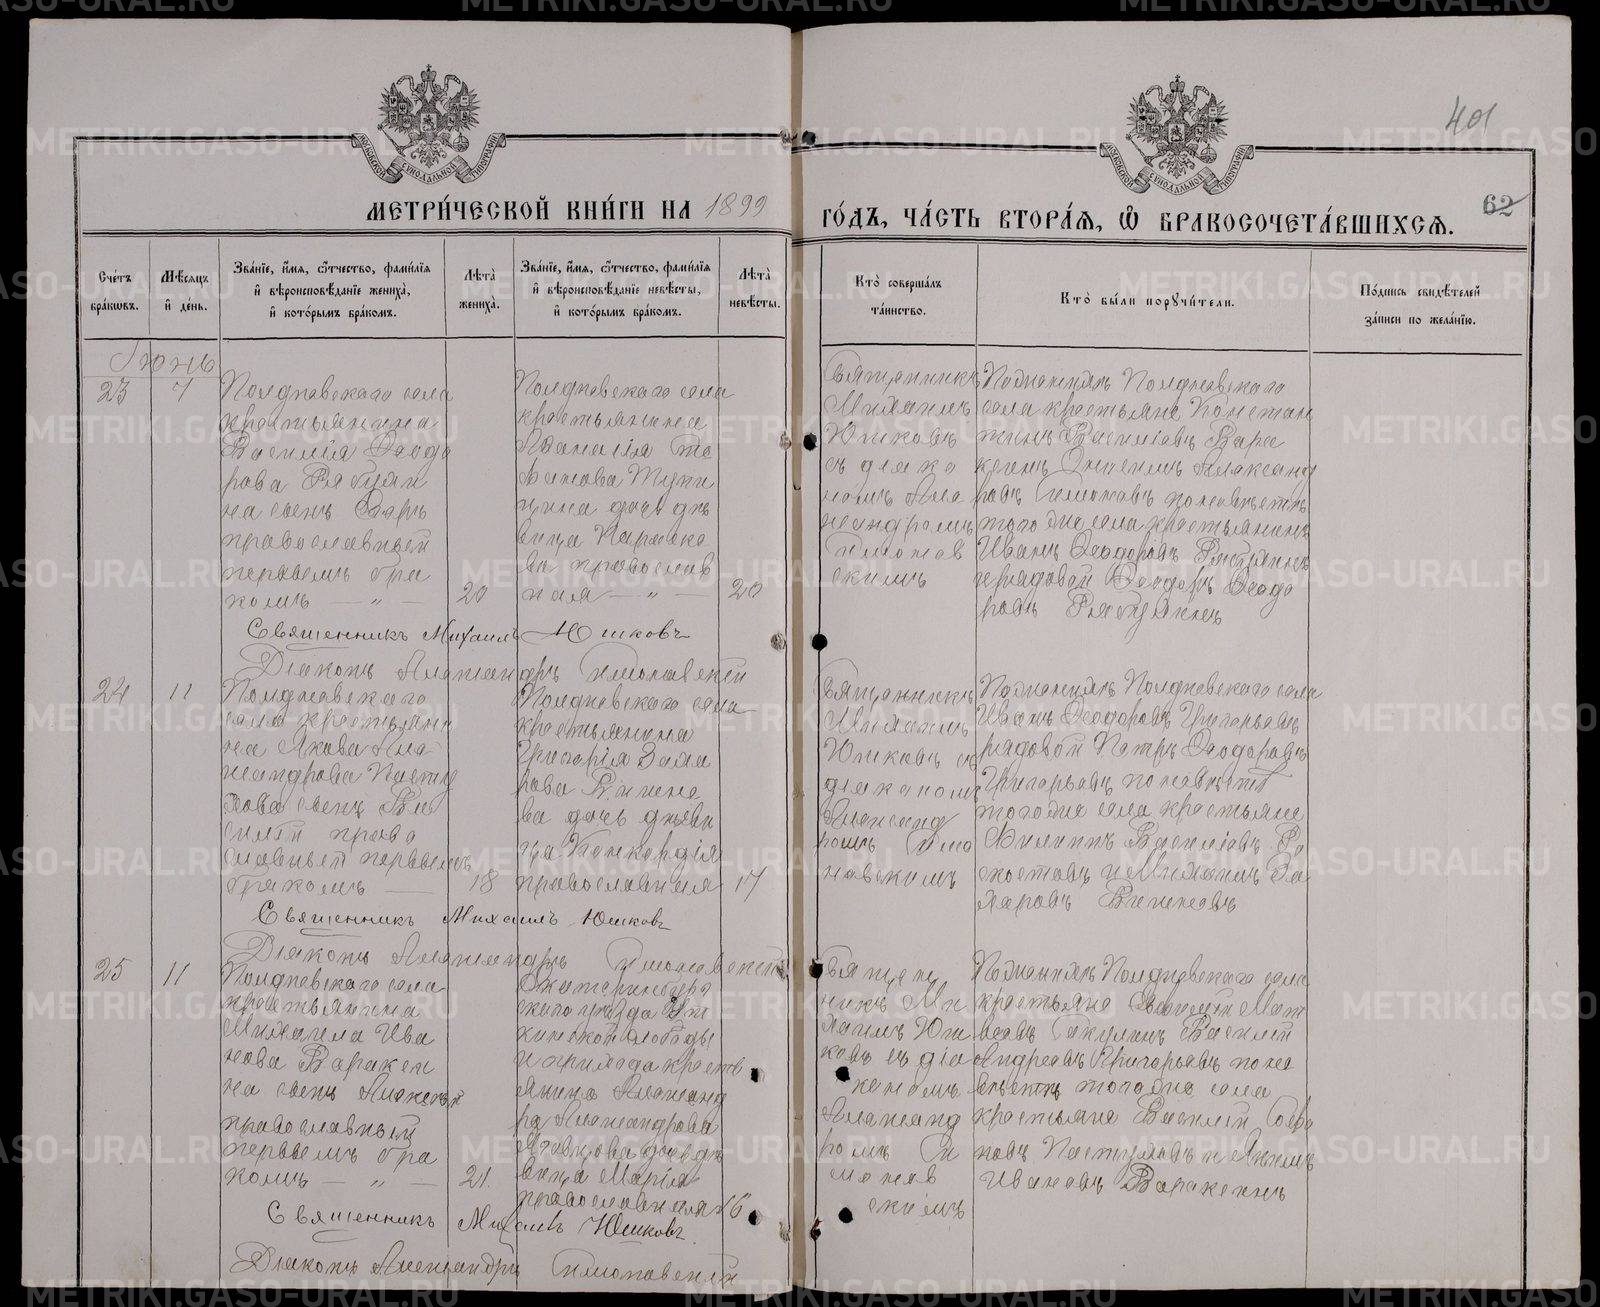 401
МЕТРИ́ЧЕСКОЙ КНИ́ГИ НА 1899
ГО́ДЪ, ЧА́СТЬ ВТОРА́Я, Ѽ БРАКОСОЧЕТА́ВШИХСЯ.
62
Сче́тъ бра́кѡвъ.
Мѣ́сяцъ и҆ де́нь.
Зва́нїе, и҆́мя, ѻ҆́тчество, фами́лїя и҆ вѣроисповѣ́данїе жениха̀, и҆ кото́рымъ бра́комъ.
Лѣ́та жениха̀.
Зва́нїе, и҆́мя, ѻ҆́тчество, фами́лїя и҆ вѣроисповѣ́данїе невѣ́сты, и҆ кото́рымъ бра́комъ.
Лѣ́та невѣ́сты.
Кто̀ соверша́лъ та́инство.
Кто̀ бы́ли порꙋчи́тели.
По́дпись свидѣ́телей за́писи по жела́нїю.
Іюнь
23
7
Полдневскаго села
крестьянина
Василія Ѳеодо
рова Рябухи
на сынъ
православный
первымъ бра
комъ — „ —
20
Полдневскаго села
крестьянина
Аѳанасія Сте
фанова
дочь дѣ
вица Параске
ва православ
ная — „ —
20
Священникъ
Михаилъ
Юшковъ
съ діако
номъ Алек
сандромъ
Симонов
скимъ
По женихѣ Полдневскаго
села крестьяне Констан
тинъ Василіевъ Вара
ксинъ Александ
ровъ по невѣстѣ
того же села крестьянинъ
Иванъ Ѳеодоровъ
и рядовой Ѳеодоръ Ѳеодо
ровъ
Священникъ Михаилъ Юшковъ
Діаконъ Александръ Симоновскій
24
11
Полдневскаго
села крестьяни
на Якова Алек
сандрова Пасту
хова сынъ Ва
силій право
славный первымъ
бракомъ —
18
Полдневскаго села
крестьянина
Григорія Заха
рова
ва дочь дѣви
ца Конкордія
православная
17
Священникъ
Михаилъ
Юшковъ съ
діакономъ
Александ
ромъ Симо
новскимъ
По женихѣ Полдневскаго села
Иванъ Ѳеодоровъ Григорьевъ
рядовой Петръ Ѳеодоровъ
Григорьевъ по невѣстѣ
того же села крестьяне
Филиппъ Василіевъ
и Михаилъ За
харовъ
Священникъ Михаилъ Юшковъ
Діаконъ Александръ Симоновскій
25
11
Полдневскаго села
крестьянина
Михаила Ива
нова Вараксин
на сынъ Алексѣй
православный
первымъ бра
комъ — „ —
21.
Екатеринбург
скаго уѣзда Ут
кинской слободы
и прихода кресть
янина Александ
ра Александрова
дочь дѣ
вица Марія
православная
16
Священ
никъ Ми
хаилъ Юш
ковъ съ діа
кономъ
Александ
ромъ Си
монов
скимъ
По женихѣ Полдневскаго села
крестьяне Мат
вѣевъ Василій
Андреевъ Григорьевъ по не
вѣстѣ того же села
крестьяне Василій
Пастуховъ и
Ивановъ Вараксинъ
Священникъ Михаилъ Юшковъ.
Діаконъ Александръ Симоновскій
METRIKI.GASO-URAL.RU